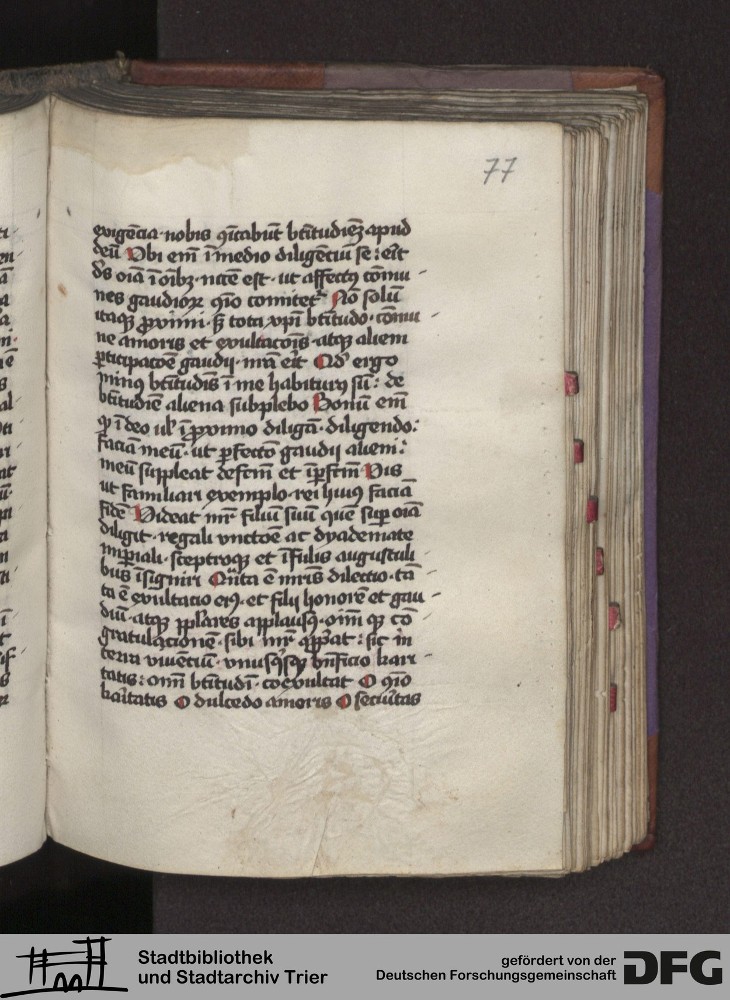 77
exigēcia · nobis
deū Vbi em̄ ī medio diligēciū se : erit
ds̄ oīa ī oībꝫ · ncc̄e est · ut affectꝯ cōmu
nes gaudioꝝ comitet᷑ Nō solū
itaqꝫ ꝓximi · sꝫ tota xp̄i btītudo · cōmu
ne amoris et exultacōis · atqꝫ alieni
ꝑticipacōe gaudij · erit Qd' ergo
minꝯ btītudīs ī me habiturꝯ sū : de
btītudīe aliena supplebo Bonū em̄
ꝙ ī deo uł ī ꝓximo diligā · diligendo :
faciā meū · ut ꝑfectō gaudij alieni :
meū suppleat defcm̄ et īꝑfcm̄ Vis
ut familiari exemplo · rei huiꝯ faciā
fidē Videat mr̄ filiū suū quē suꝑ oīa
diligit · regali vnctōe ac dyademate
imꝑiali · sceptroqꝫ et īfulis augustali
bus īsigniri Qn̄ta ē mr̄is dilectio · tā
ta ē exultacio eiꝯ · et filij honorē et gau
diū · atqꝫ applausꝯ · oīm qꝫ cō
gratulacionē · sibi mr̄ : sic in
terra viuenciū · vnusqꝫ bn̄ficio kari
tatis : om̄i btītudī · coexultat O
kaītatis O dulcedo amoris O
Stadtbibliothek
und Stadtarchiv Trier
gefördert von der
Deutschen Forschungsgemeinschaft
DFG